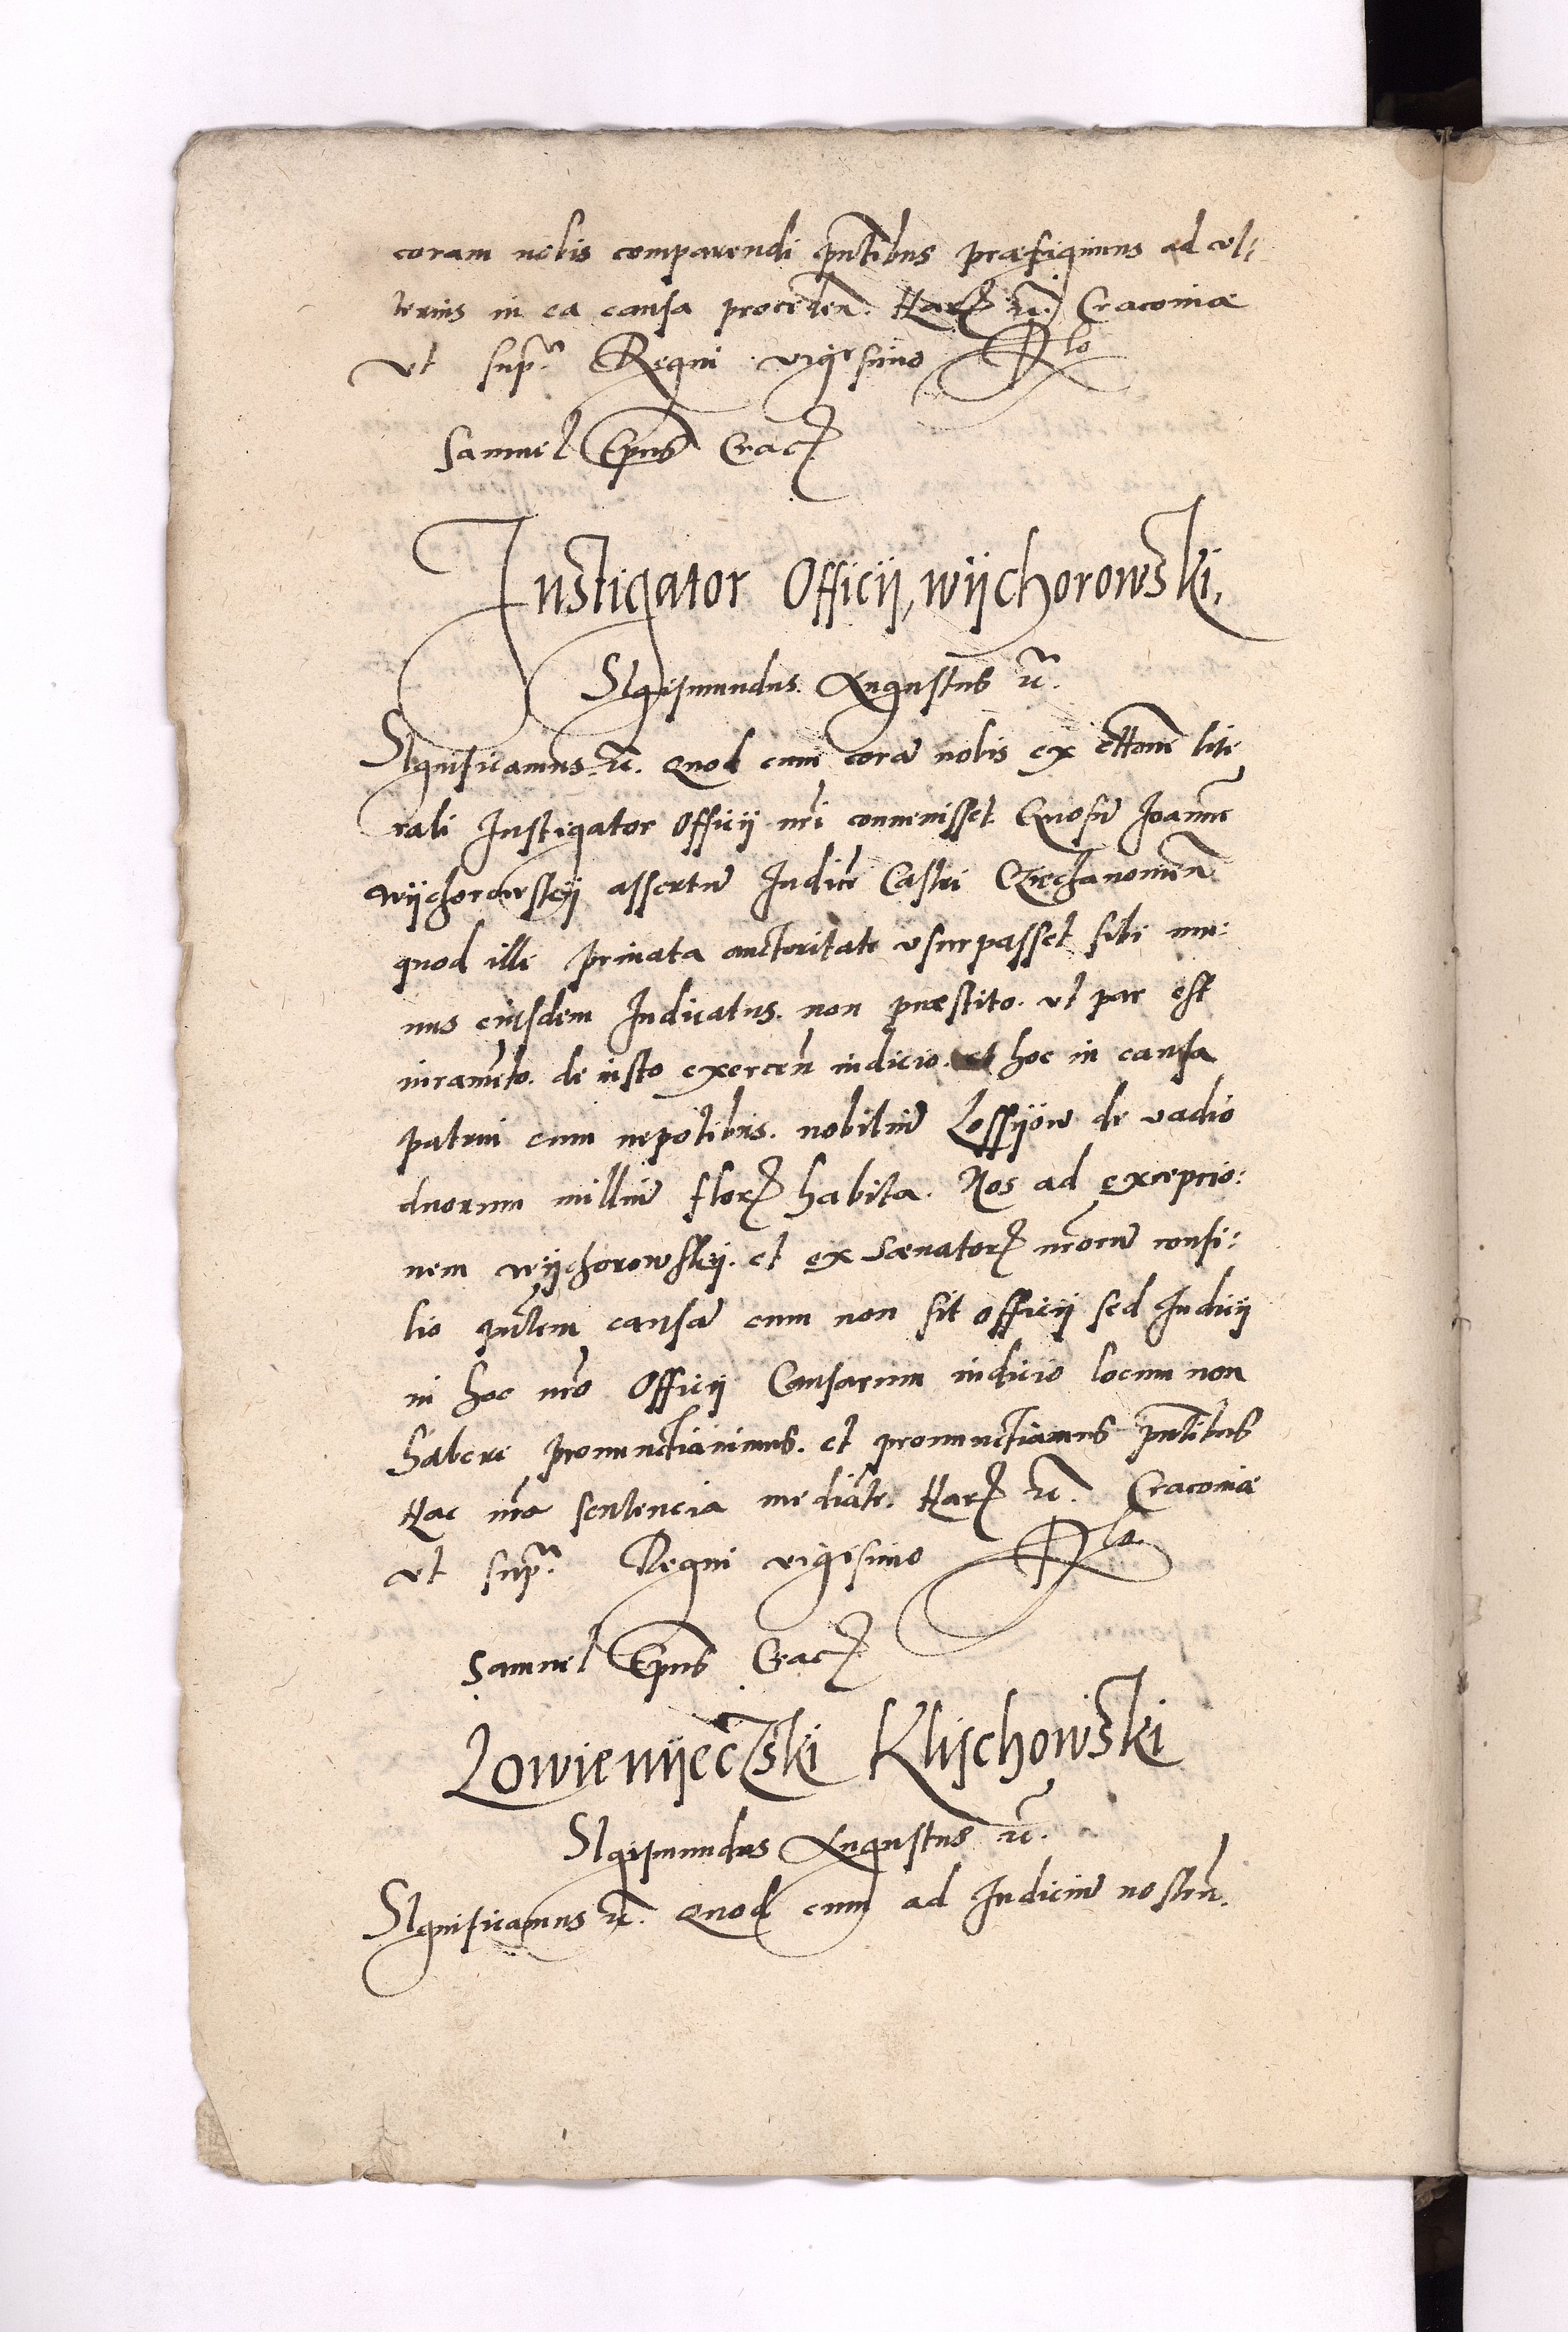 coram nobis comparendi pntibus præfigimus ad vl:
terius in ea causa proceden. Har. etc. Cracoviæ
vt supra Regni vigesimo Rlo
Samuel Epus Crac.
Instigator Officij, wijchorowski,
Sigismundus Augustus etc.
Significamus etc. Quod cum cora nobis ex cittone lite
rali Instigator Officij nri convenisset Gnosu Joanne
wijchorowskij assertu Judice Castri Cziechanovien
quod ille privata auctoritate vsurpasset sibi mu:
nus eiusdem Judicatus. non præstito. vt par est
iuramento. de iusto exercen iudicio. et hoc in causa
patrui cum nepotibus. nobiliu Lossijow de vadio
duorum milliu flor. habita. Nos ad exceptio:
nem wijchorowskij. et ex Sænator. nroru consi:
lio pntem causam cum non sit officij sed Judicij
in hoc nro Officij Causarum iudicio locum non
habere pronunctiavimus. et pronunctiamus pntibus
Hac nra sentencia mediante. Har. etc. Cracoviæ
vt supra Regni vigesimo Rlo
Samuel Epus Crac.
Lowienijeczski Klijchowski
Sigismundus Augustus etc.
Significamus etc. Quod cum ad Judiciu nostru.